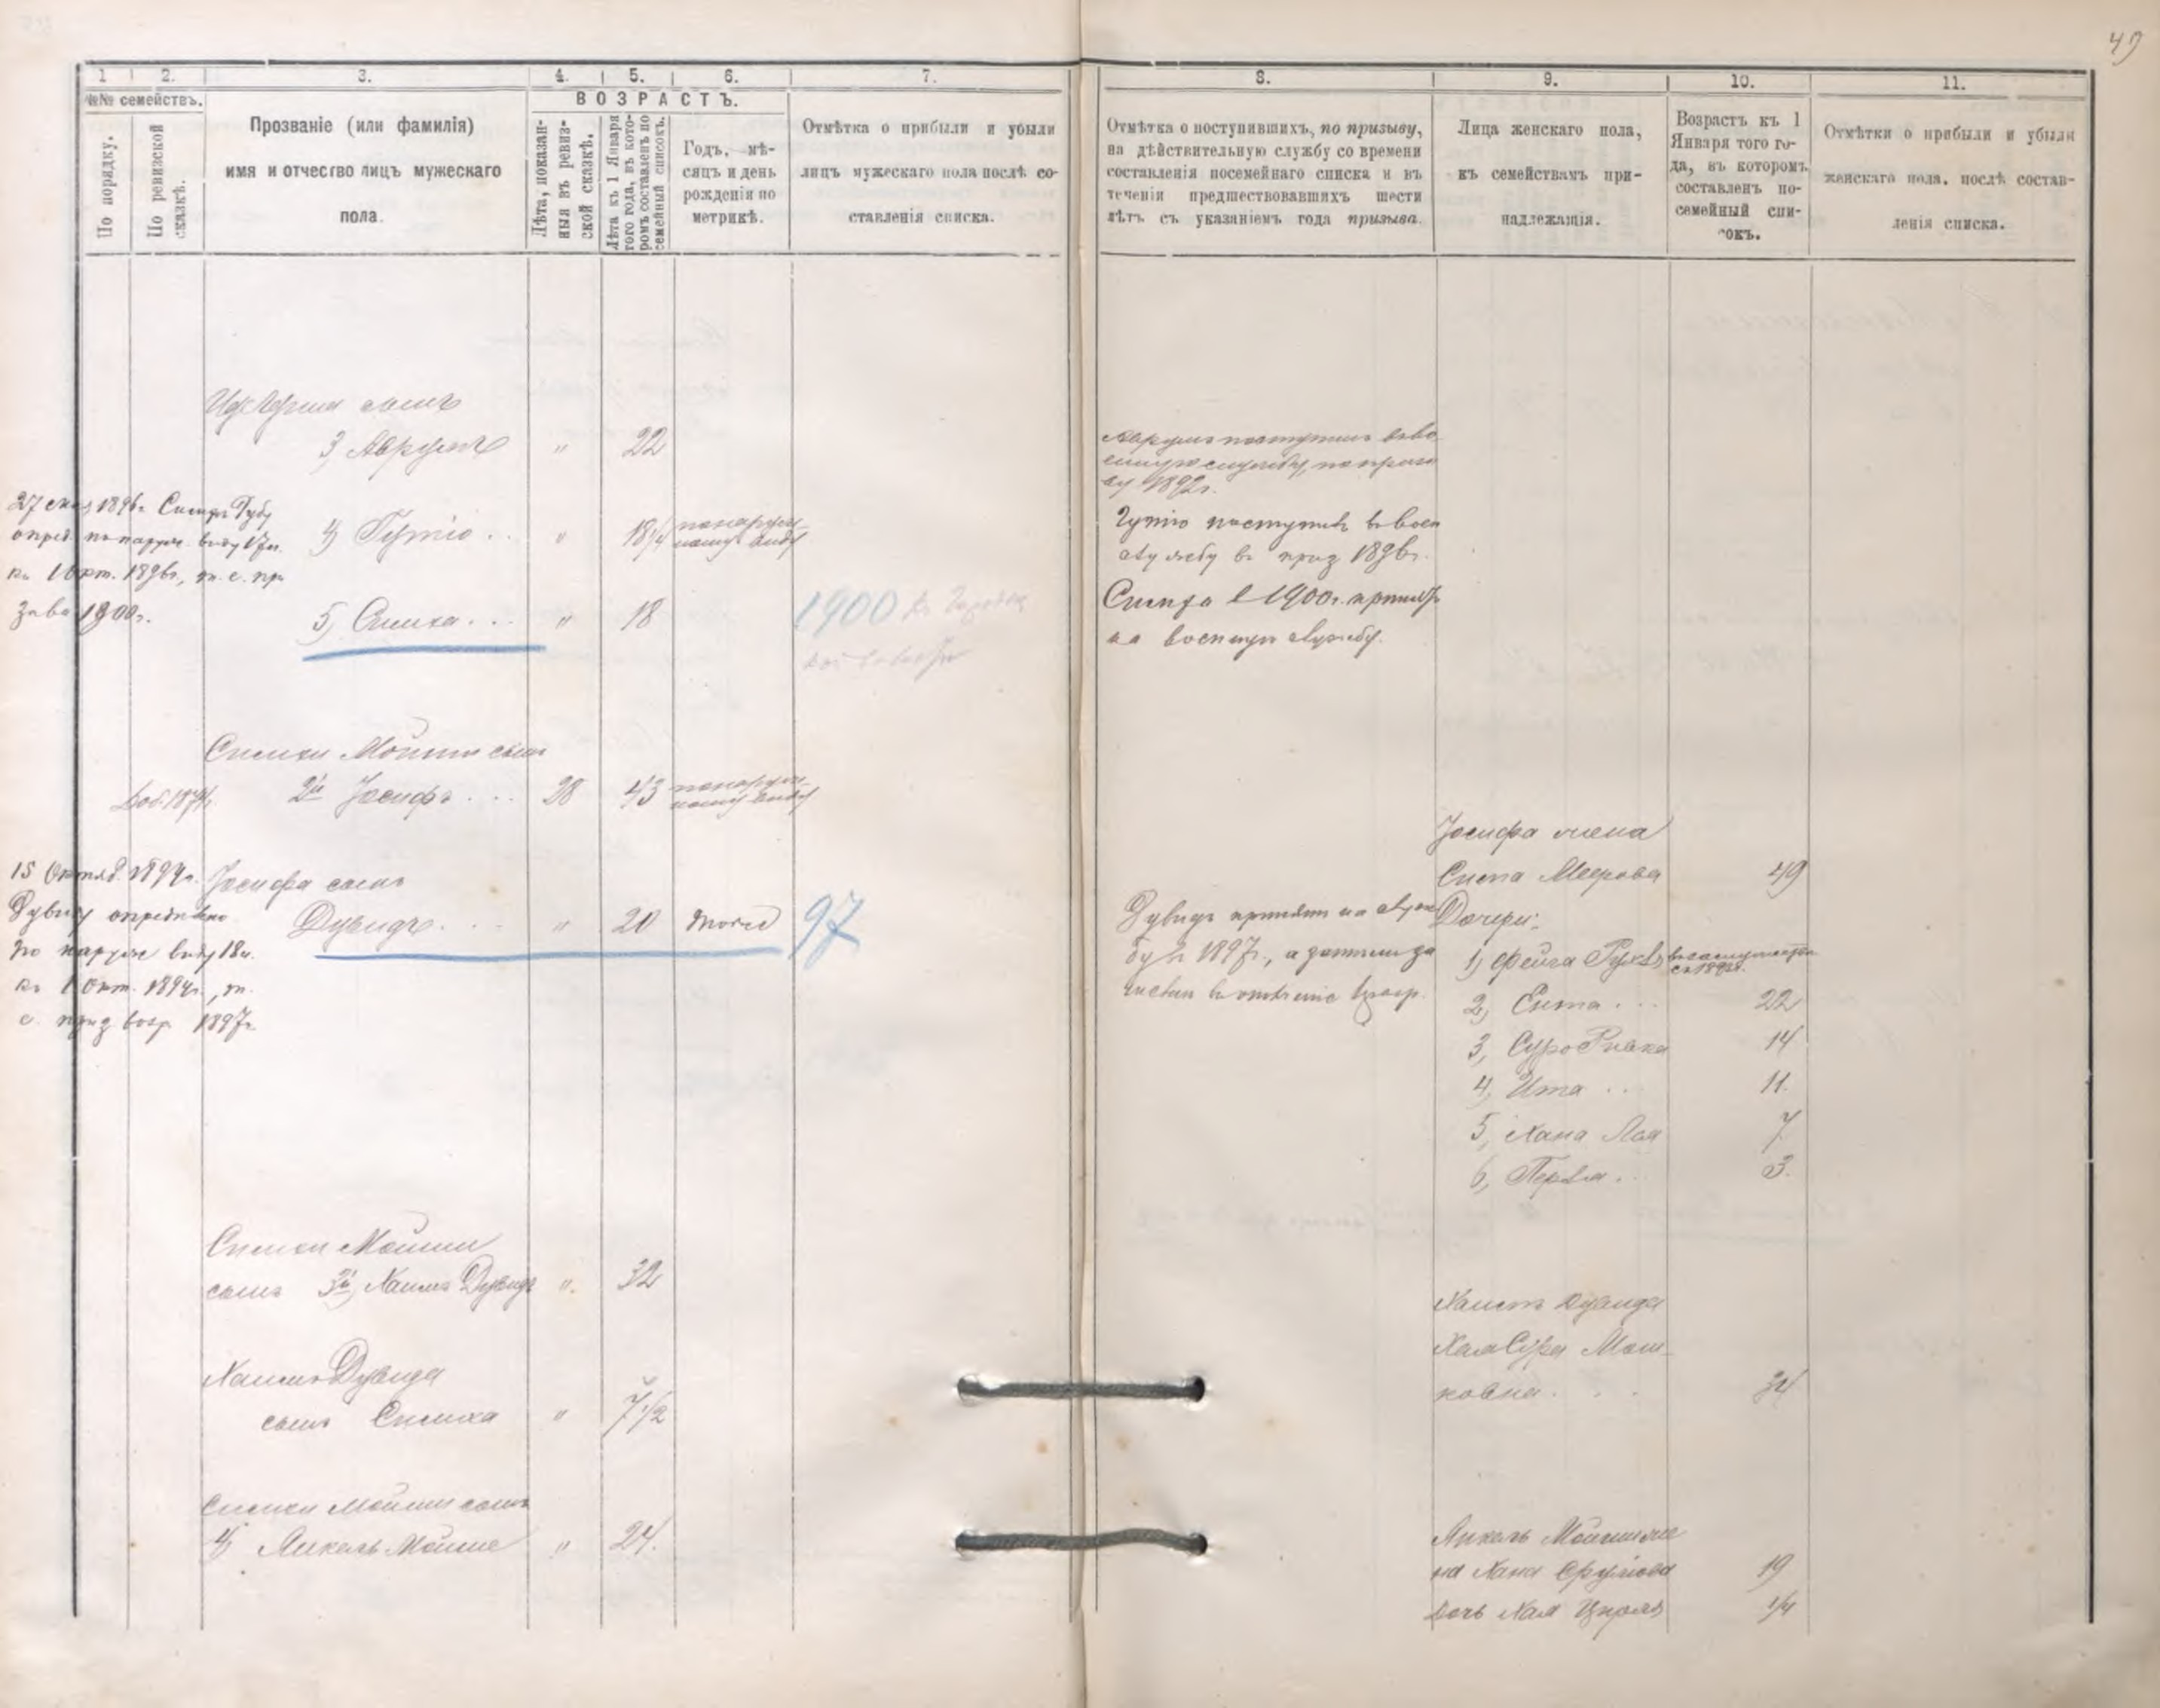 49
1
2.
3.
4.
5.
6.
7.
№№ семействъ.
По порядку.
По ревизской сказкѣ.
Прозваніе (или фамилія)
имя и отчество лицъ мужескаго
пола.
ВОЗРАСТЪ.
Лѣта, показан-
ныя въ ревиз-
ской сказкѣ.
Лѣта къ 1 Января
того года, въ кото-
ромъ составленъ по-
семейный списокъ.
Годъ, мѣ-
сяцъ и день
рожденія по
метрикѣ.
Отмѣтка о прибыли и убыли
лицъ мужескаго пола послѣ со-
ставленія списка.
8.
9.
10.
11.
Отмѣтка о поступившихъ, по призыву,
на дѣйствительную службу со времени
составленія посемейнаго списка и въ
теченіи предшествовавшихъ шести
лѣтъ съ указаніемъ года призыва.
Лица женскаго пола,
къ семействамъ при-
надлежащія.
Возрастъ къ 1
Января того го-
да, въ которомъ
составленъ по-
семейный спи-
сокъ.
Отмѣтки о прибыли и убыли
женскаго пола, послѣ состав-
ленія списка.
сынъ
3, Аврумъ " 22
Аврумъ поступилъ въ во
енную службу, по призы
ву 1892 г.
27 1896 г.
опред. по наруж. виду 17 л.
къ 1 окт. 1896 г., т. е. пр
зыва 1900 г.
4) Гутіо . . " 18/4 по наруж-
ному виду
Гутіо поступилъ въ воен
службу въ приз 1896 г.
5, Симха . . . " 18
1900
Симха въ 1900 г. принятъ
на военную службу.
Симхи Мойши сынъ
Доб. 1874 г.
2й Іосифъ . . . 28 43 по наруж-
ному виду
15 Октяб. 1894 г.
Дувиду опредѣлено
по наруж виду 18 л.
къ 1 Окт. 1894 г., т.
е. приз возр 1897 г.
Іосифа сынъ
Дувидъ . . . " 20 тоже 97
Дувидъ принятъ на служ
бу въ 1897 г., а затѣмъ за
Іосифа жена
Сипа Меерова 49
Дочери:
1) Фейга Рухль въ замужествѣ
съ 1892 г.
2, Ента . . . 22
3, Суро Ривка 14
4, Ита . . . 11.
5, Хана Лая 7
6, Перва . . 3.
Симхи Мойши
сынъ 3й Хаимъ Дувидъ ". 32
Хаимъ Дувида
Хая Сура Мош-
ковна . . . 34
Хаимъ Дувида
сынъ Симха " 7 1/2
Симхи Мойши сынъ
4) Янкель Мойше " 24.
Янкель Мойши же
на Хана Фроимова 19
дочь Хая Цирля 1/4